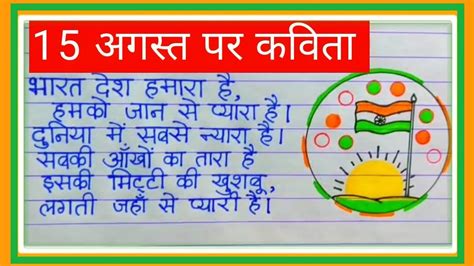 15 अगस्त पर कविता
भारत देश हमारा है,
हमको जान से प्यारा है।
दुनिया में सबसे न्यारा है।
सबकी आँखों का तारा है
इसकी मिट्टी की खुशबू,
लगती जहाँ से प्यारी है।